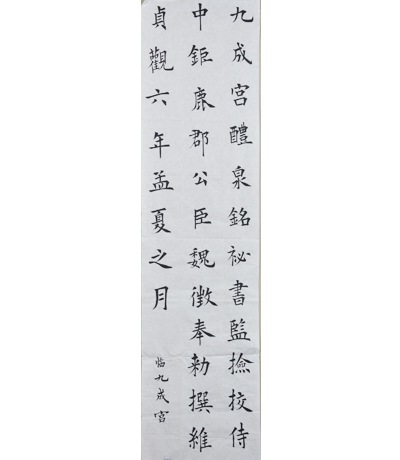 九成宮醴泉銘祕書監撿挍侍
中鉅鹿郡公臣魏徵奉勑撰維
貞觀六年孟夏之月
临九成宮